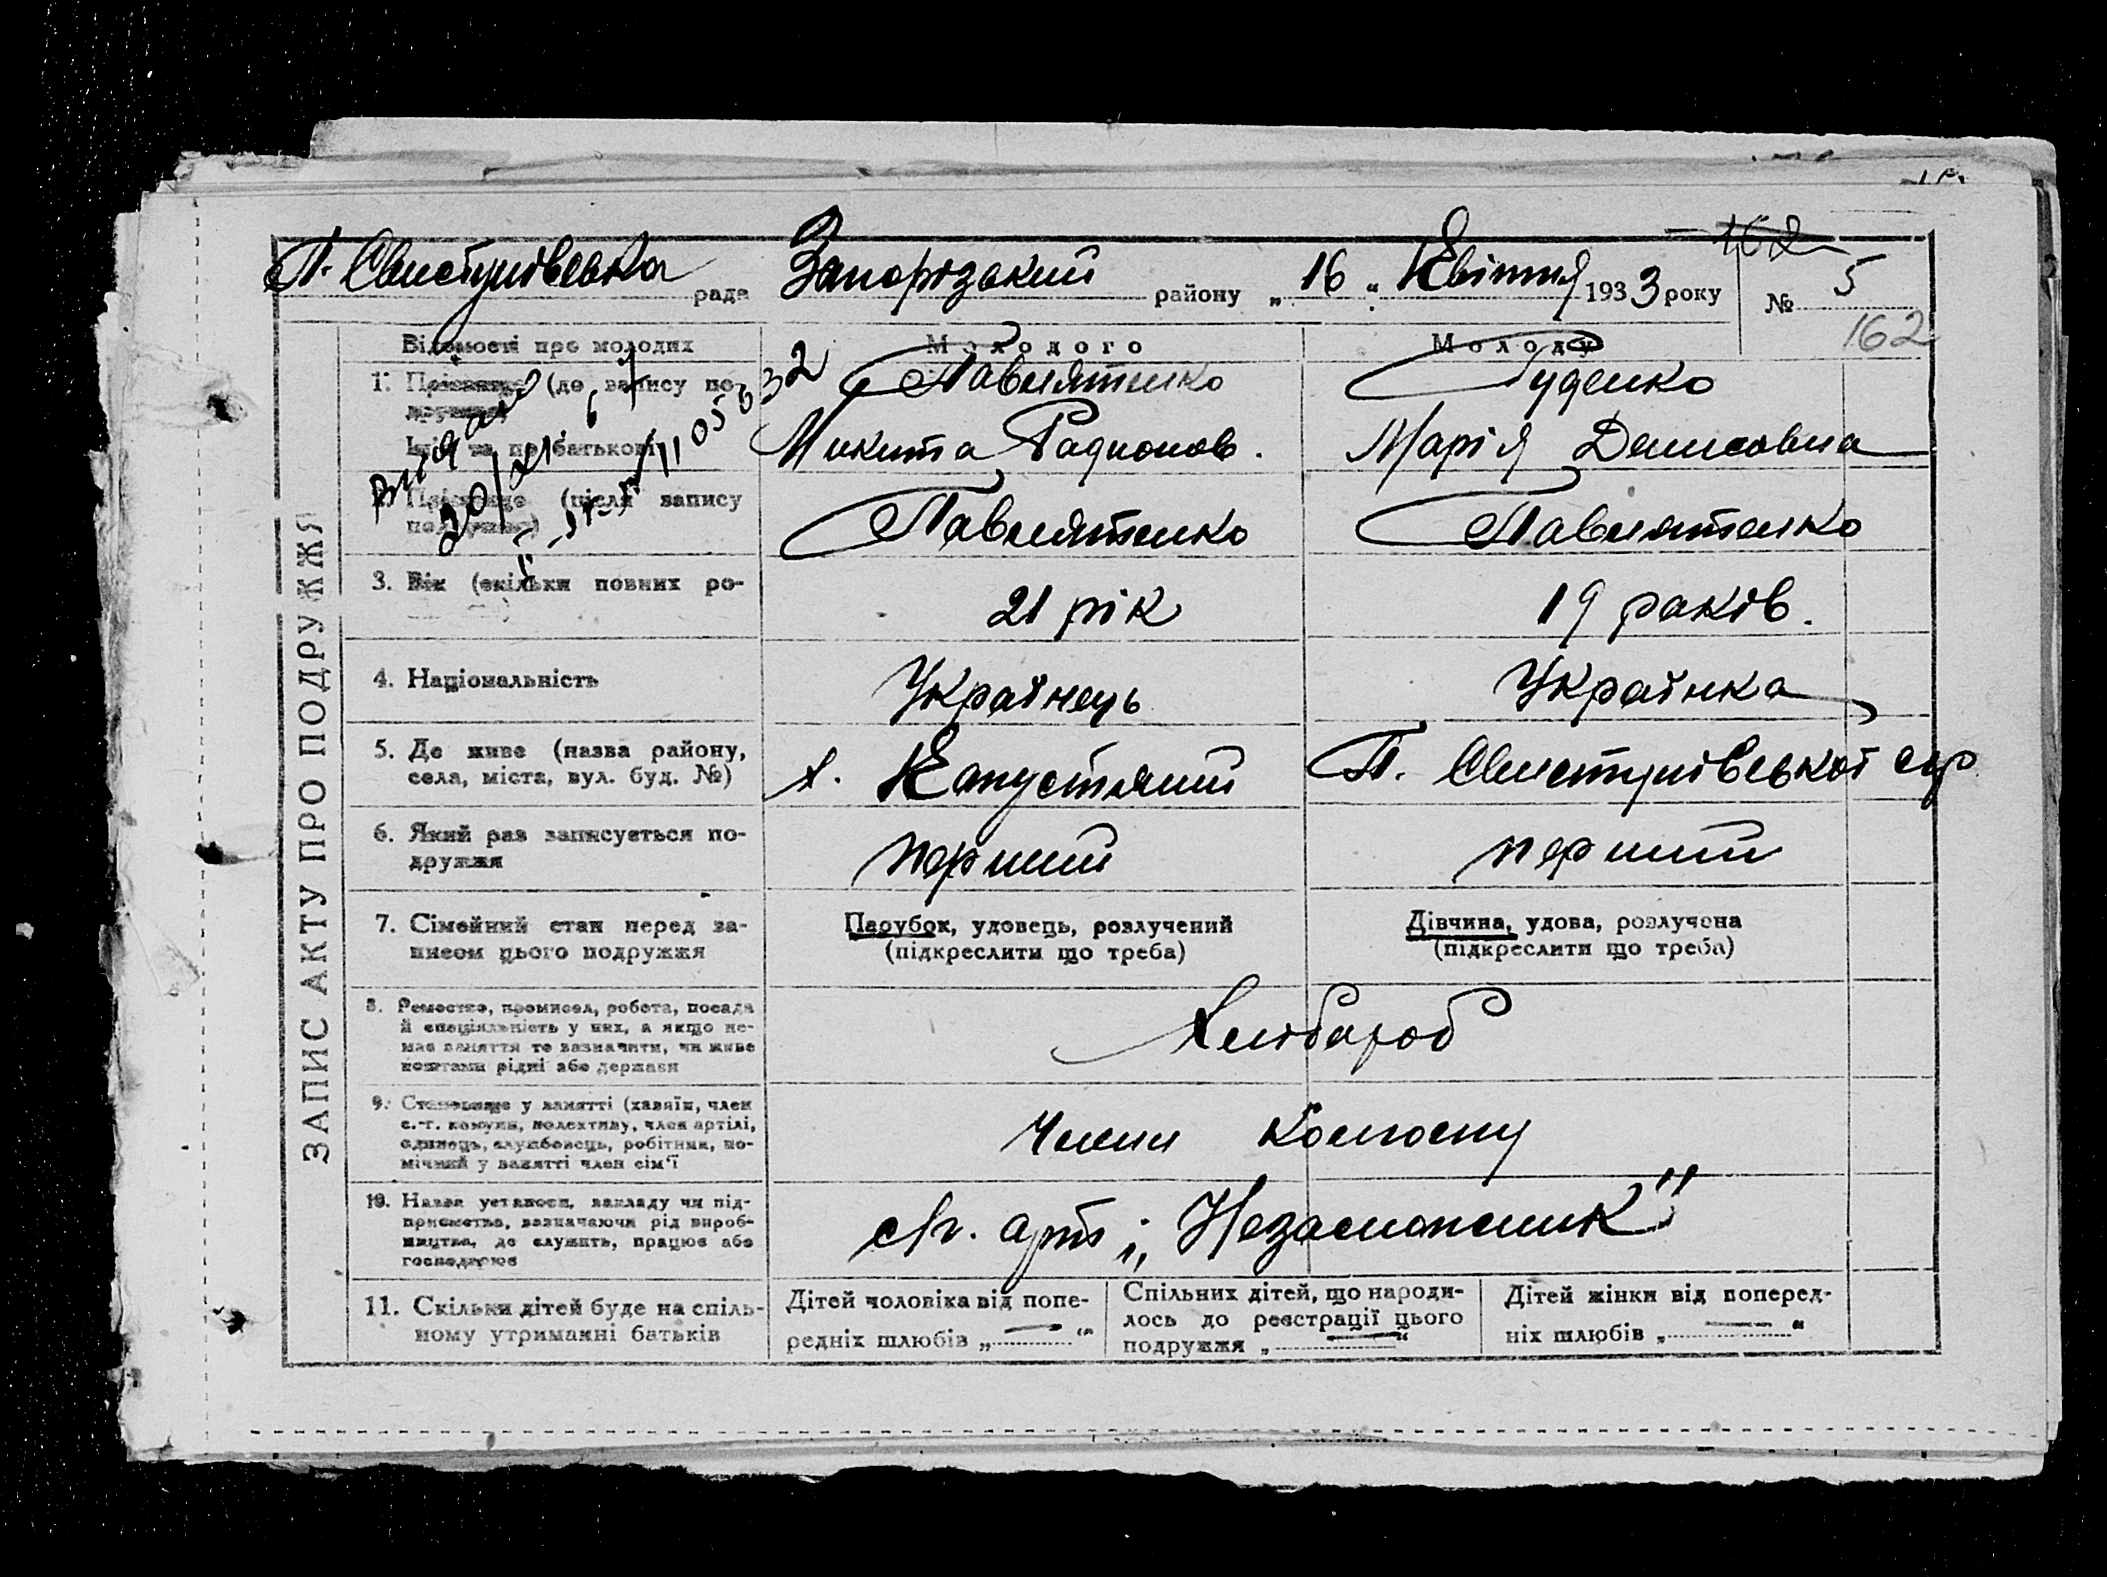 П. Свистунівська рада Запорізький району „ 16 " Квітня 1933 року № 5
162
162
ЗАПИС АКТУ ПРО ПОДРУЖЖЯ
Відомості про молодих Молодого Молоду
1. Прізвище (до запису по- Павлятенко Гуденко
дружжя)
Ім'я та по батькові Микита Радионов. Марія Денисовна
Прізвище (після запису Павлятенко Павлятенко
подружжя)
3. Вік (скільки повних ро- 21 рік 19 раків.
4. Національність Українець Українка
5. Де живе (назва району, х. Капустяний П. Свистунівської с/р
села, міста, вул. буд. №)
6. Який раз записується по- перший перший
дружжя
7. Сімейний стан перед за- Парубок, удовець, розлучений Дівчина, удова, розлучена
писом цього подружжя (підкреслити що треба) (підкреслити що треба)
8. Ремество, промисел, робота, посада
й спеціяльність у них, а якщо не-
має заняття то зазначити, чи живе Хлібароб
коштами рідні або держави
9. Становище у занятті (хазяїн, член
с.-г. комуни, колективу, член артілі, Члени Колгоспу
одинець, службовець, робітник, по-
мічний у занятті член сім'ї
10. Назва установи, закладу чи під-
приємства, зазначаючи рід вироб- с/г. арт. „Незаможник"
ництва, де служить, працює або
господарює
11. Скільки дітей буде на спіль- Дітей чоловіка від попе- Спільних дітей, що народи- Дітей жінки від поперед-
ному утриманні батьків редніх шлюбів „ — " лось до реєстрації цього ніх шлюбів „ — "
подружжя „ — "